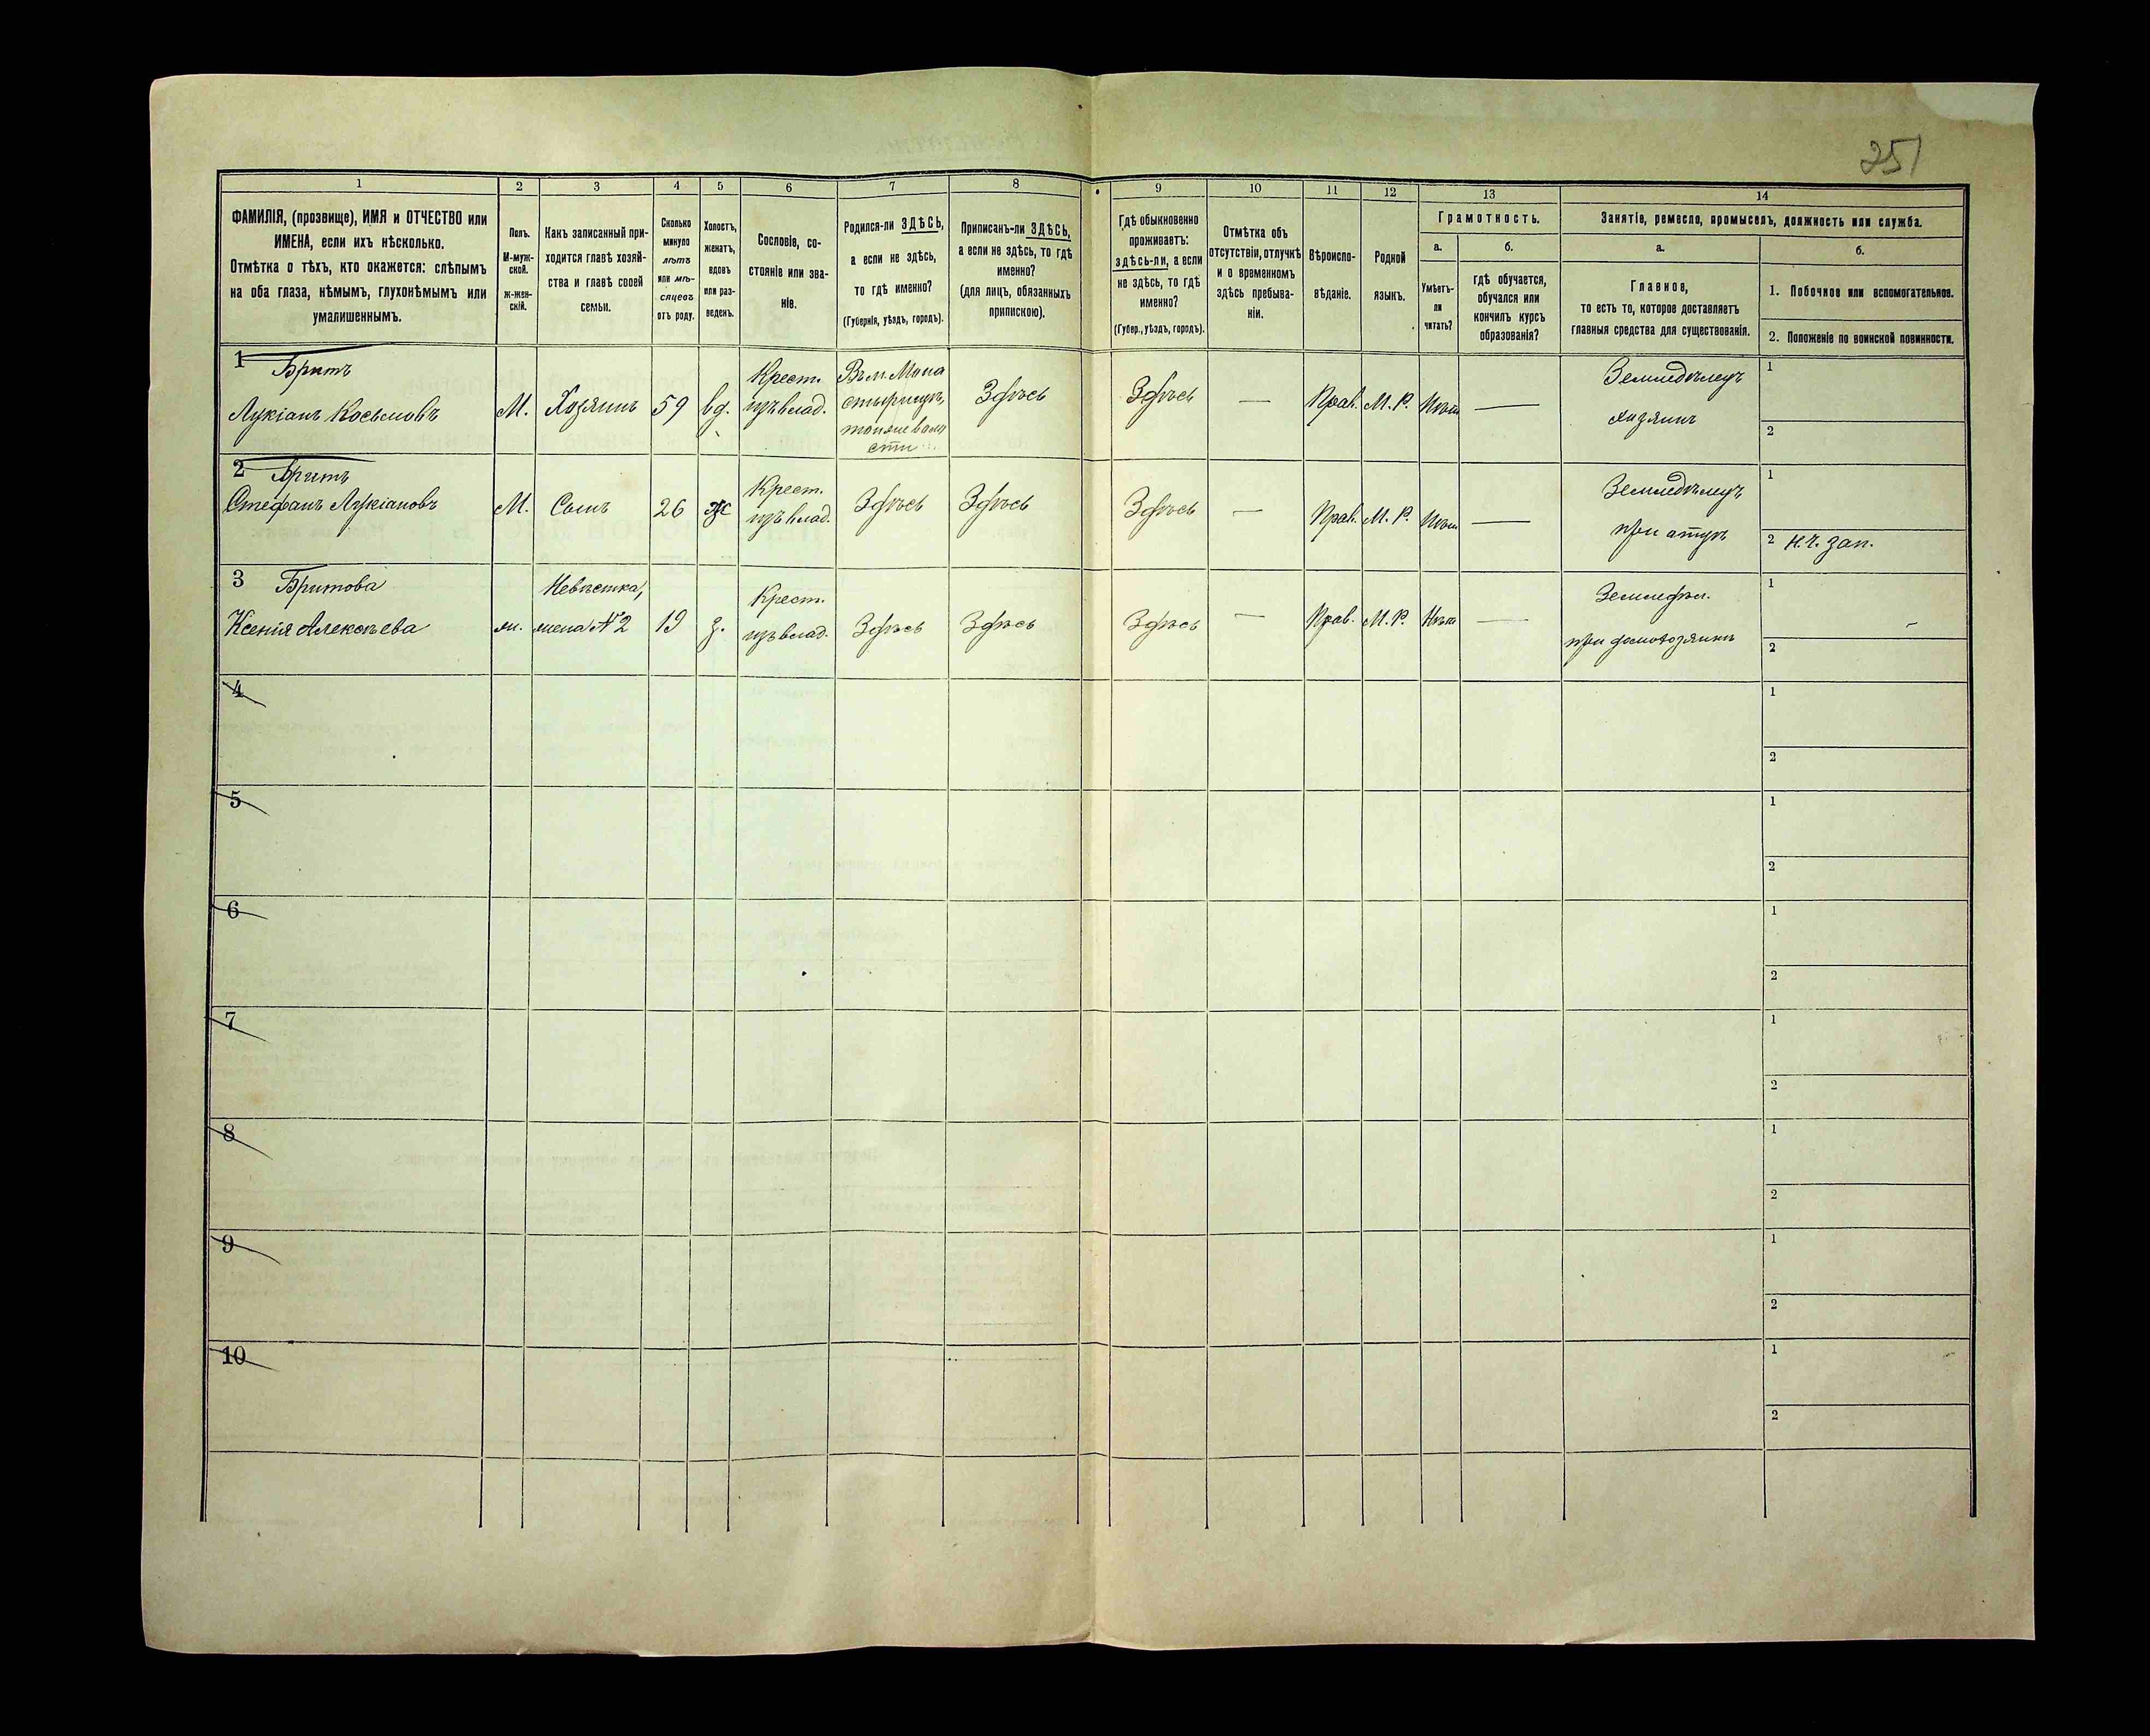 251
1 2 3 4 5 6 7 8 9 10 11 12 13 14
ФАМИЛІЯ, (прозвище), ИМЯ и ОТЧЕСТВО или
ИМЕНА, если ихъ нѣсколько.
Отмѣтка о тѣхъ, кто окажется: слѣпымъ
на оба глаза, нѣмымъ, глухонѣмымъ или
умалишеннымъ.
Полъ.
М-муж-
ской.
Ж-жен-
скій.
Какъ записанный при-
ходится главѣ хозяй-
ства и главѣ своей
семьи.
Сколько
минуло
лѣтъ
или мѣ-
сяцевъ
отъ роду.
Холостъ,
женатъ,
вдовъ
или раз-
веденъ.
Сословіе, со-
стояніе или зва-
ніе.
Родился-ли ЗДѢСЬ,
а если не здѣсь,
то гдѣ именно?
(Губернія, уѣздъ, городъ).
Приписанъ-ли ЗДѢСЬ,
а если не здѣсь, то гдѣ
именно?
(для лицъ, обязанныхъ
припискою).
Гдѣ обыкновенно
проживаетъ:
здѣсь-ли, а если
не здѣсь, то гдѣ
именно?
(Губер., уѣздъ, городъ).
Отмѣтка объ
отсутствіи, отлучкѣ
и о временномъ
здѣсь пребыва-
ніи.
Вѣроиспо-
вѣданіе.
Родной
языкъ.
Грамотность.
а.
Умѣетъ-
ли
читать?
б.
гдѣ обучается,
обучался или
кончилъ курсъ
образованія?
Занятіе, ремесло, промыселъ, должность или служба.
а.
Главное,
то есть то, которое доставляетъ
главныя средства для существованія.
б.
1. Побочное или вспомогательное.
2. Положеніе по воинской повинности.
1 Бритъ
Лукіанъ Косьмовъ
М.
Хозяинъ
59
вд.
Крест.
изъ влад.
Здѣсь
Здѣсь
—
Прав.
М. Р.
Нѣтъ
—
Земледѣлецъ
хозяинъ
1
2
2 Бритъ
Стефанъ Лукіановъ
М.
Сынъ
26
ж
Крест.
изъ влад.
Здѣсь
Здѣсь
Здѣсь
—
Прав.
М. Р.
Нѣтъ
—
Земледѣлецъ
при отцѣ
1
2 н. ч. зап.
3 Бритова
Ксенія Алексѣева
ж.
Невѣстка,
жена №2
19
з.
Крест.
изъ влад.
Здѣсь
Здѣсь
Здѣсь
—
Прав.
М. Р.
Нѣтъ
—
Земледѣл.
при домохозяинѣ
1
2
4
1
2
5
1
2
6
1
2
7
1
2
8
1
2
9
1
2
10
1
2